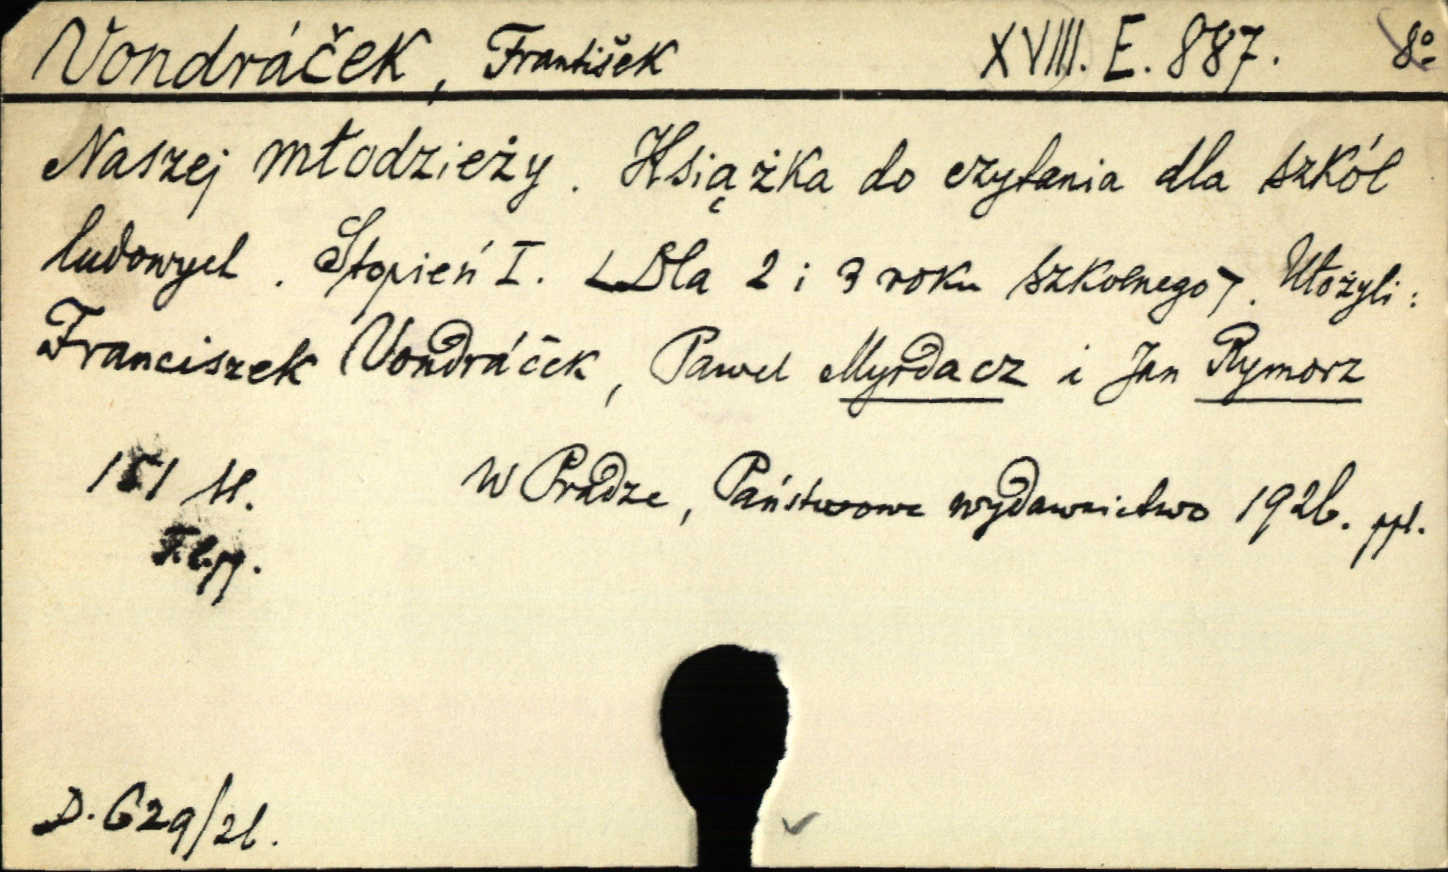 Vondráček, František XVIII. E. 887. 8°
Naszej młodzieży. Książka do czytania dla szkół
ludowych. Stopień I. <Dla 2 i 3 roku szkolnego>. Ułożyli:
Franciszek Vondráček, Paweł Myrdacz i Jan Rymorz
151 st. W Pradze, Państwowe wydawnictwo 1926. ppl.
D. 629/26.